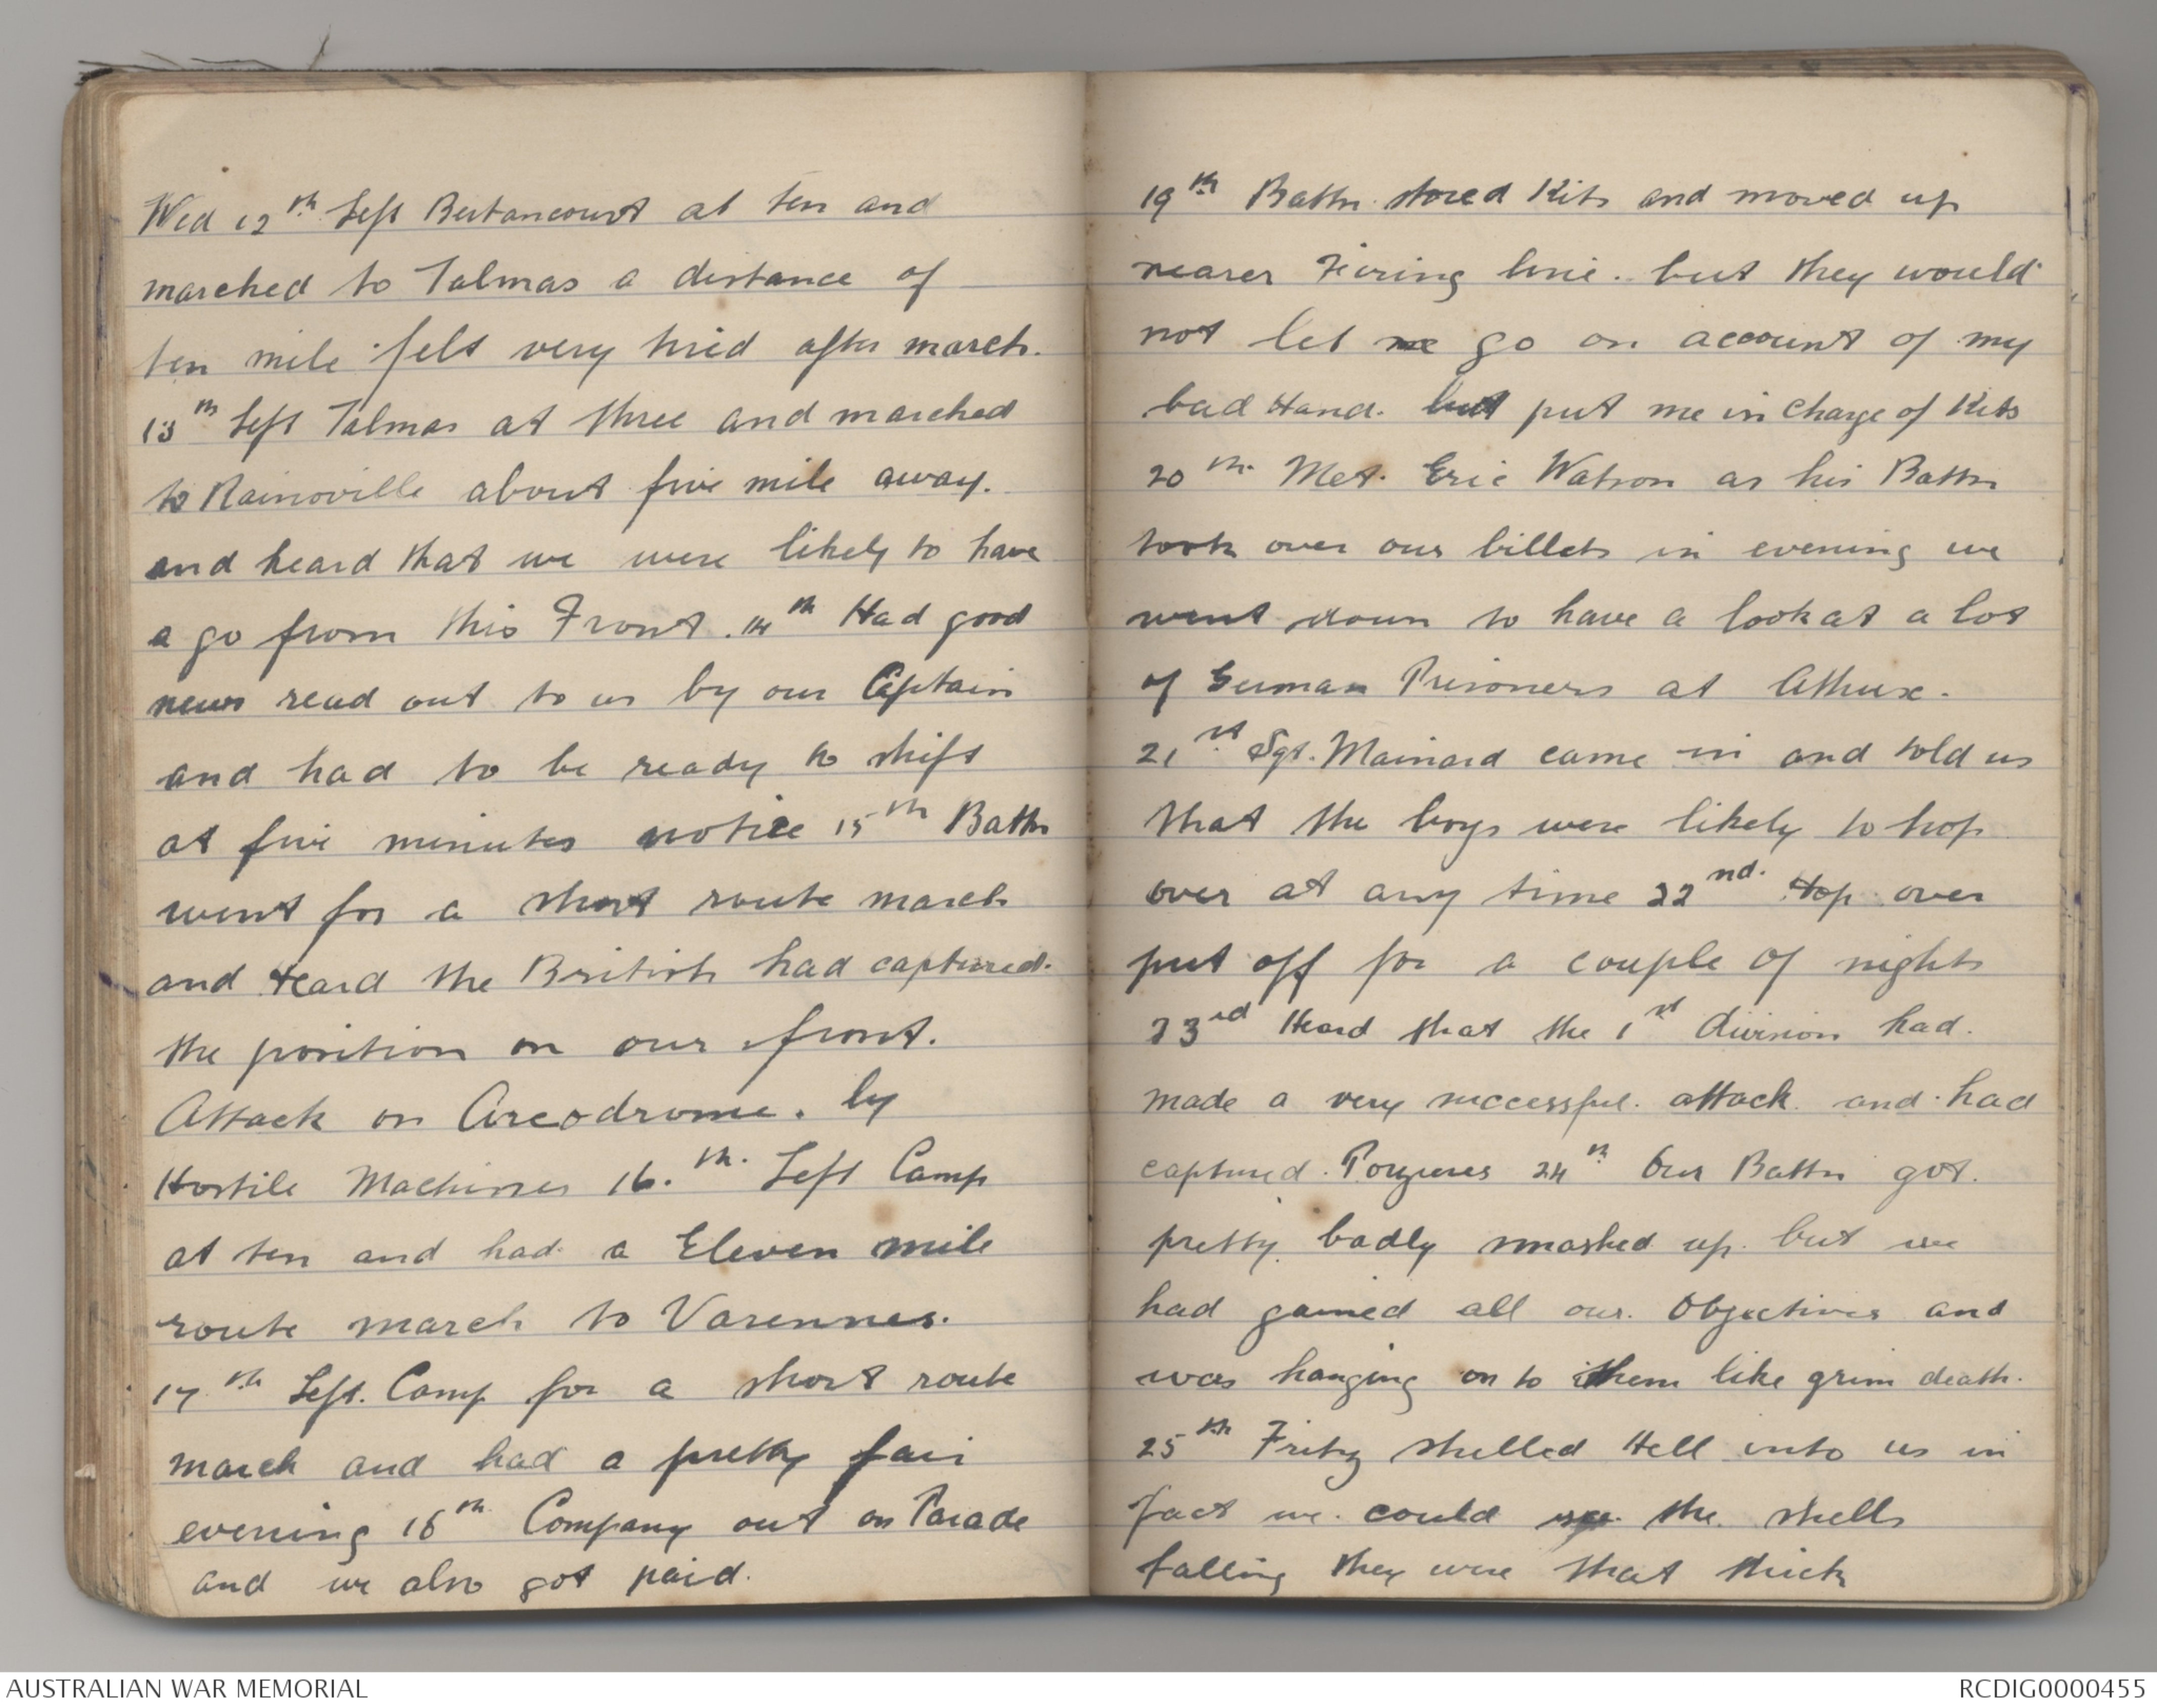 Wed 12th Left Bertancourt at ten and
marched to Talmas a distance of
ten mile felt very tired after march.
13th Left Talmas at three and marched
to Rainoville about five mile away.
and heard that we were likely to have
a go from this Front. 14th Had good
news read out to us by our Captain
and had to be ready to shift
at five minutes notice 15th Battn
went for a short route march
and Heard the British had captured.
the position on our front.
Attack on Areodrome. by
Hostile Machines 16.th Left Camp
at ten and had a Eleven mile
route march to Varennes.
17th Left. Camp for a short route
march and had a pretty fair
evening 18th Company out on Parade
and we also got paid.
19th Battn stored Kits and moved up
nearer Fiering line. but they would
not let me go on account of my
bad Hand. but put me in charge of Kits
20th Met. Eric Watson as his Battn
took over our billets in evening we
went down to have a look at a lot
of German Prisoners at Athuxe.
21st Sgt. Mainard came in and told us
that the boys were likely to hop
over at any time 22nd. Hop over
put off for a couple of nights
23rd Heard that the 1st Division had.
made a very successful. attack and had
captured. Poyieres 24th Our Battn got.
pretty badly smashed up. but we
had gained all our. Objectives and
was hanging on to them like grim death.
25th Fritz shelled Hell into us in
fact we. could see the shells
falling they were that thick
AUSTRALIAN WAR MEMORIAL
RCDIG0000455